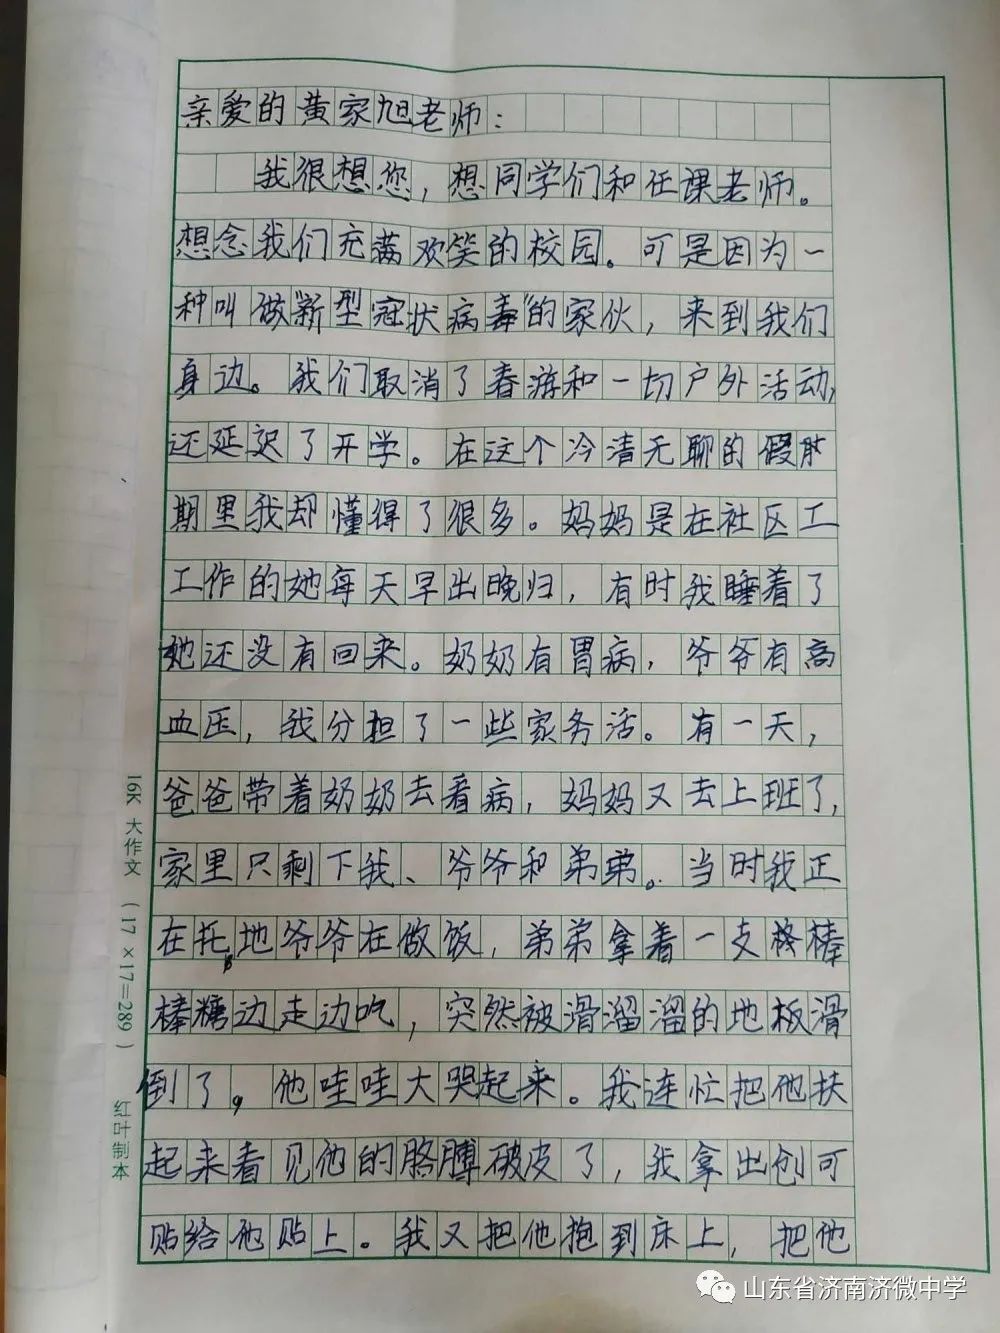 亲爱的黄家旭老师：
我很想您，想同学们和任课老师。
想念我们充满欢笑的校园。可是因为一
种叫做“新型冠状病毒”的家伙，来到我们
身边。我们取消了春游和一切户外活动，
还延迟了开学。在这个冷清无聊的假
期里我却懂得了很多。妈妈是在社区工
工作的她每天早出晚归，有时我睡着了
她还没有回来。奶奶有胃病，爷爷有高
血压，我分担了一些家务活。有一天，
爸爸带着奶奶去看病，妈妈又去上班了，
家里只剩下我、爷爷和弟弟。当时我正
在拖地爷爷在做饭，弟弟拿着一支棒
棒糖边走边吃，突然被滑溜溜的地板滑
倒了，他哇哇大哭起来。我连忙把他扶
起来看见他的胳膊破皮了，我拿出创可
贴给他贴上。我又把他抱到床上，把他
16K 大作文 （17×17=289） 红叶制本
山东省济南济微中学